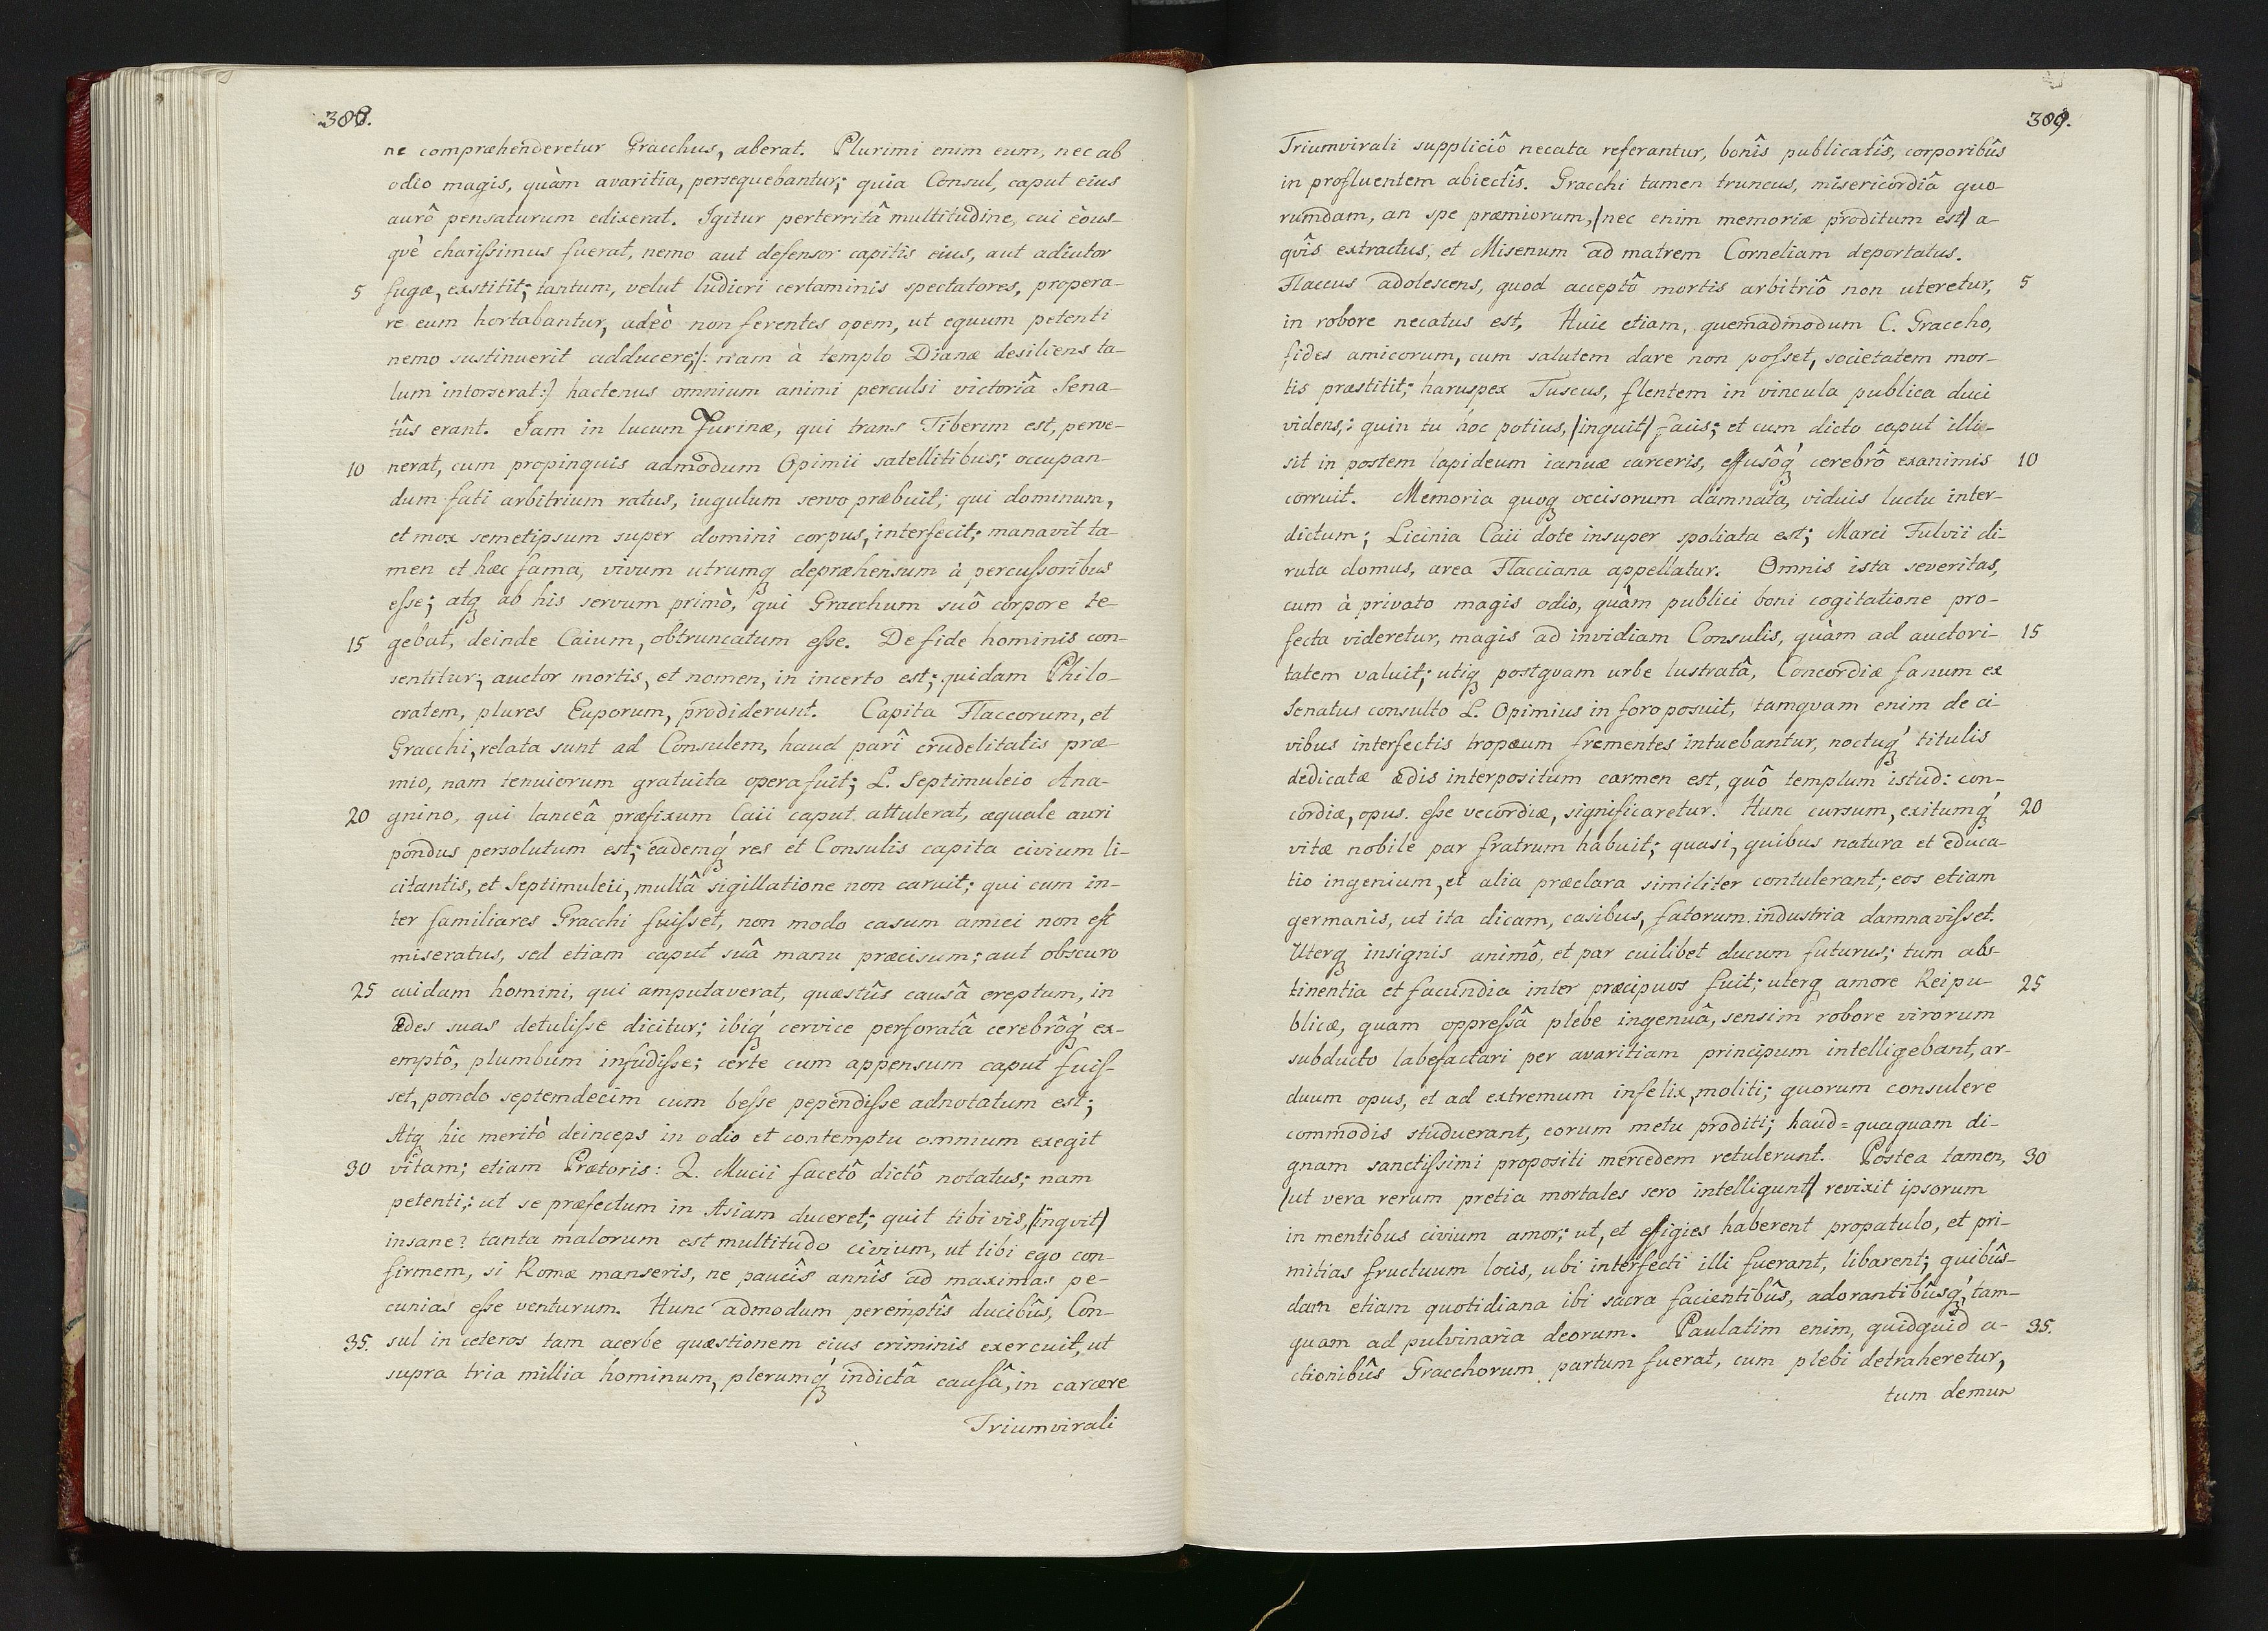 308.
ne compræhenderetur Gracchus, aberat. Plurimi enim eum, nec ab
odio magis, quàm avaritia, persequebantur; quia Consul, caput eius
aurô pensaturum edixerat. Igitur perterritâ multitudine, cui eòus-
qvè charissimus fuerat, nemo aut defensor capitis eius, aut adiutor
5 fugæ, exstitit; tantum, velut ludicri certaminis spectatores, propera-
re eum hortabantur, adeò non ferentes opem, ut equum petenti
nemo sustinuerit adducere;/: nam à templo Dianæ desiliens ta-
lum intorserat:/ hactenus omnium animi perculsi victoriâ Sena-
tûs erant. Iam in lucum Furinæ, qui trans Tiberim est, perve-
10 nerat, cum propinquis admodum Opimii satellitibus; occupan-
dum fati arbitrium ratus, iugulum servo præbuit; qui dominum,
et mox semetipsum super domini corpus, interfecit; manavit ta-
men et hæc fama, vivum utrumq depræhensum à percussoribus
esse; atq ab his servum primò, qui Gracchum suô corpore te-
15 gebat, deinde Caium, obtruncatum esse. De fide hominis con-
sentitur; auctor mortis, et nomen, in incerto est; quidam Philo-
cratem, plures Euporum, prodiderunt. Capita Flaccorum, et
Gracchi, relata sunt ad Consulem, haud parî crudelitatis præ-
mio, nam tenuiorum gratuita opera fuit; L. Septimuleio Ana-
20 gnino, qui lanceâ præfixum Caii caput attulerat, æquale auri
pondus persolutum est; eademq́ res et Consulis capita civium li-
citantis, et Septimuleii, multâ sigillatione non caruit; qui cum in-
ter familiares Gracchi fuisset, non modo casum amici non est
miseratus, sed etiam caput suâ manu præcisum; aut obscuro
25 cuidam homini, qui amputaverat, quæstûs causâ ereptum, in
ædes suas detulisse dicitur; ibiq́ cervice perforatâ cerebrôq́ ex-
emptô, plumbum infudisse; certe cum appensum caput fuis-
set, pondo septemdecim cum besse pependisse adnotatum est;
Atq hic meritò deinceps in odio et contemptu omnium exegit
30 vitam; etiam Prætoris: Q. Mucii facetô dictô notatus; nam
petenti,: ut se præfectum in Asiam duceret; quit tibi vis, /inqvit/
insane? tanta malorum est multitudo civium, ut tibi ego con-
firmem, si Romæ manseris, ne paucîs annîs ad maximas pe-
cunias esse venturum. Hunc admodum peremptîs ducibûs, Con-
35. sul in ceteros tam acerbe quæstionem eius criminis exercuit, ut
supra tria millia hominum, plerumq́ indictâ causâ, in carcere
Triumvirali
309.
Triumvirali suppliciô necata referantur, bonîs publicatîs, corporibûs
in profluentem abiectîs. Gracchi tamen truncus, misericordiâ quo-
rumdam, an spe præmiorum, /nec enim memoriæ proditum est/ a-
qvîs extractus, et Misenum ad matrem Corneliam deportatus.
Flaccus adolescens, quod acceptô mortis arbitriô non uteretur, 5
in robore necatus est. Huic etiam, quemadmodum C. Graccho,
fides amicorum, cum salutem dare non posset, societatem mor-
tis præstitit; haruspex Tuscus, flentem in vincula publica duci
videns,: quin tu hoc potius, /inquit/ facis; et cum dicto caput illi-
sit in postem lapideum ianuæ carceris, effusôq́ cerebrô exanimis 10
corruit. Memoria quoq occisorum damnata, viduis luctu inter-
dictum; Licinia Caii dote insuper spoliata est; Marci Fulvii di-
ruta domus, area Flacciana appellatur. Omnis ista severitas,
cum à privato magis odio, quàm publici boni cogitatione pro-
fecta videretur, magis ad invidiam Consulis, quàm ad auctori- 15
tatem valuit; utiq postquam urbe lustratâ, Concordiæ fanum ex
Senatus consulto L. Opimius in foro posuit, tamquam enim de ci-
vibus interfectis tropæum frementes intuebantur, noctuq́ titulis
dedicatæ ædis interpositum carmen est, quô templum istud: con-
cordiæ, opus. esse vecordiæ, significaretur. Hunc cursum, exitumq́ 20
vitæ nobile par fratrum habuit; quasi, quibus natura et educa-
tio ingenium, et alia præclara similiter contulerant; eos etiam
germanis, ut ita dicam, casibus, fatorum industria damnavisset.
Uterq insignis animô, et par cuilibet ducum futurus; tum abs-
tinentia et facundia inter præcipuos fuit; uterq amore Reipu- 25
blicæ, quam oppressâ plebe ingenuâ, sensim robore virorum
subducto labefactari per avaritiam principum intelligebant, ar-
duum opus, et ad extremum infelix, moliti; quorum consulere
commodis studuerant, eorum metu proditi; haud=quaquam di-
gnam sanctissimi propositi mercedem retulerunt. Postea tamen, 30
/ut vera rerum pretia mortales sero intelligunt/ revixit ipsorum
in mentibus civium amor; ut, et effigies haberent propatulo, et pri-
mitias fructuum locis, ubi interfecti illi fuerant, libarent; quibûs-
dam etiam quotidiana ibi sacra facientibûs, adorantibûsq́, tam-
quam ad pulvinaria deorum. Paulatim enim, quidquid a- 35.
ctionibûs Gracchorum partum fuerat, cum plebi detraheretur,
tum demum